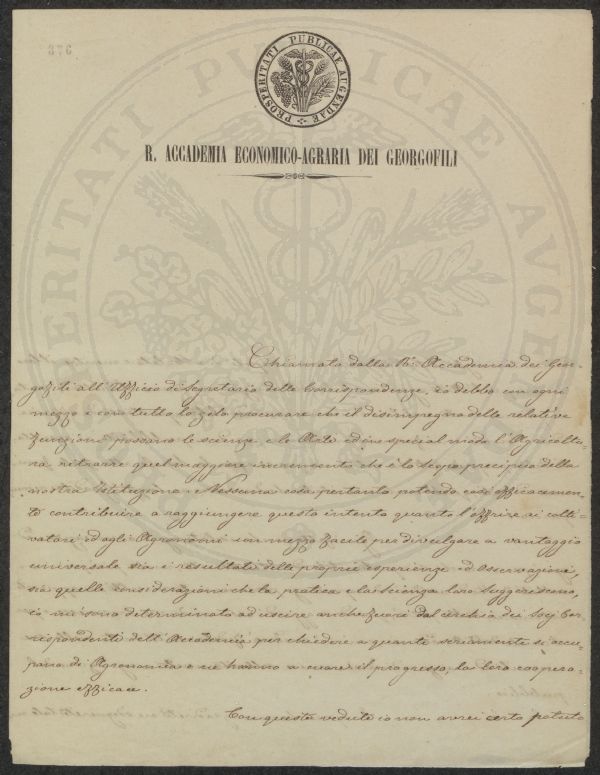 376
PROSPERITATI PUBLICAE AUGENDAE
R. ACCADEMIA ECONOMICO-AGRARIA DEI GEORGOFILI
Chiamato dalla R. Accademia dei Geor-
gofili all'Uffizio di Segretario delle Corrispondenze, io debbo con ogni
mezzo e con tutto lo zelo procurare che il disimpegno delle relative
funzioni possano le scienze e le Arti ed in special modo l'Agricoltu-
ra ritrarre quel maggiore incremento che è lo scopo precipuo della
nostra Istituzione. Nessuna cosa pertanto potendo così efficacemen-
te contribuire a raggiungere questo intento quanto l'offrire ai colti-
vatori ed agli Agronomi un mezzo facile per divulgare a vantaggio
universale sia i resultati delle proprie esperienze ed Osservazioni,
sia quelle considerazioni che la pratica e la scienza loro suggeriscono,
io mi sono determinato ad uscire anche fuori dal cerchio dei Socj Cor-
rispondenti dell'Accademia per chiedere a quanti seriamente si occu-
pano di Agronomia e ne hanno a cuore il progresso, la loro coopera-
zione efficace.
Con queste vedute io non avrei certo potuto